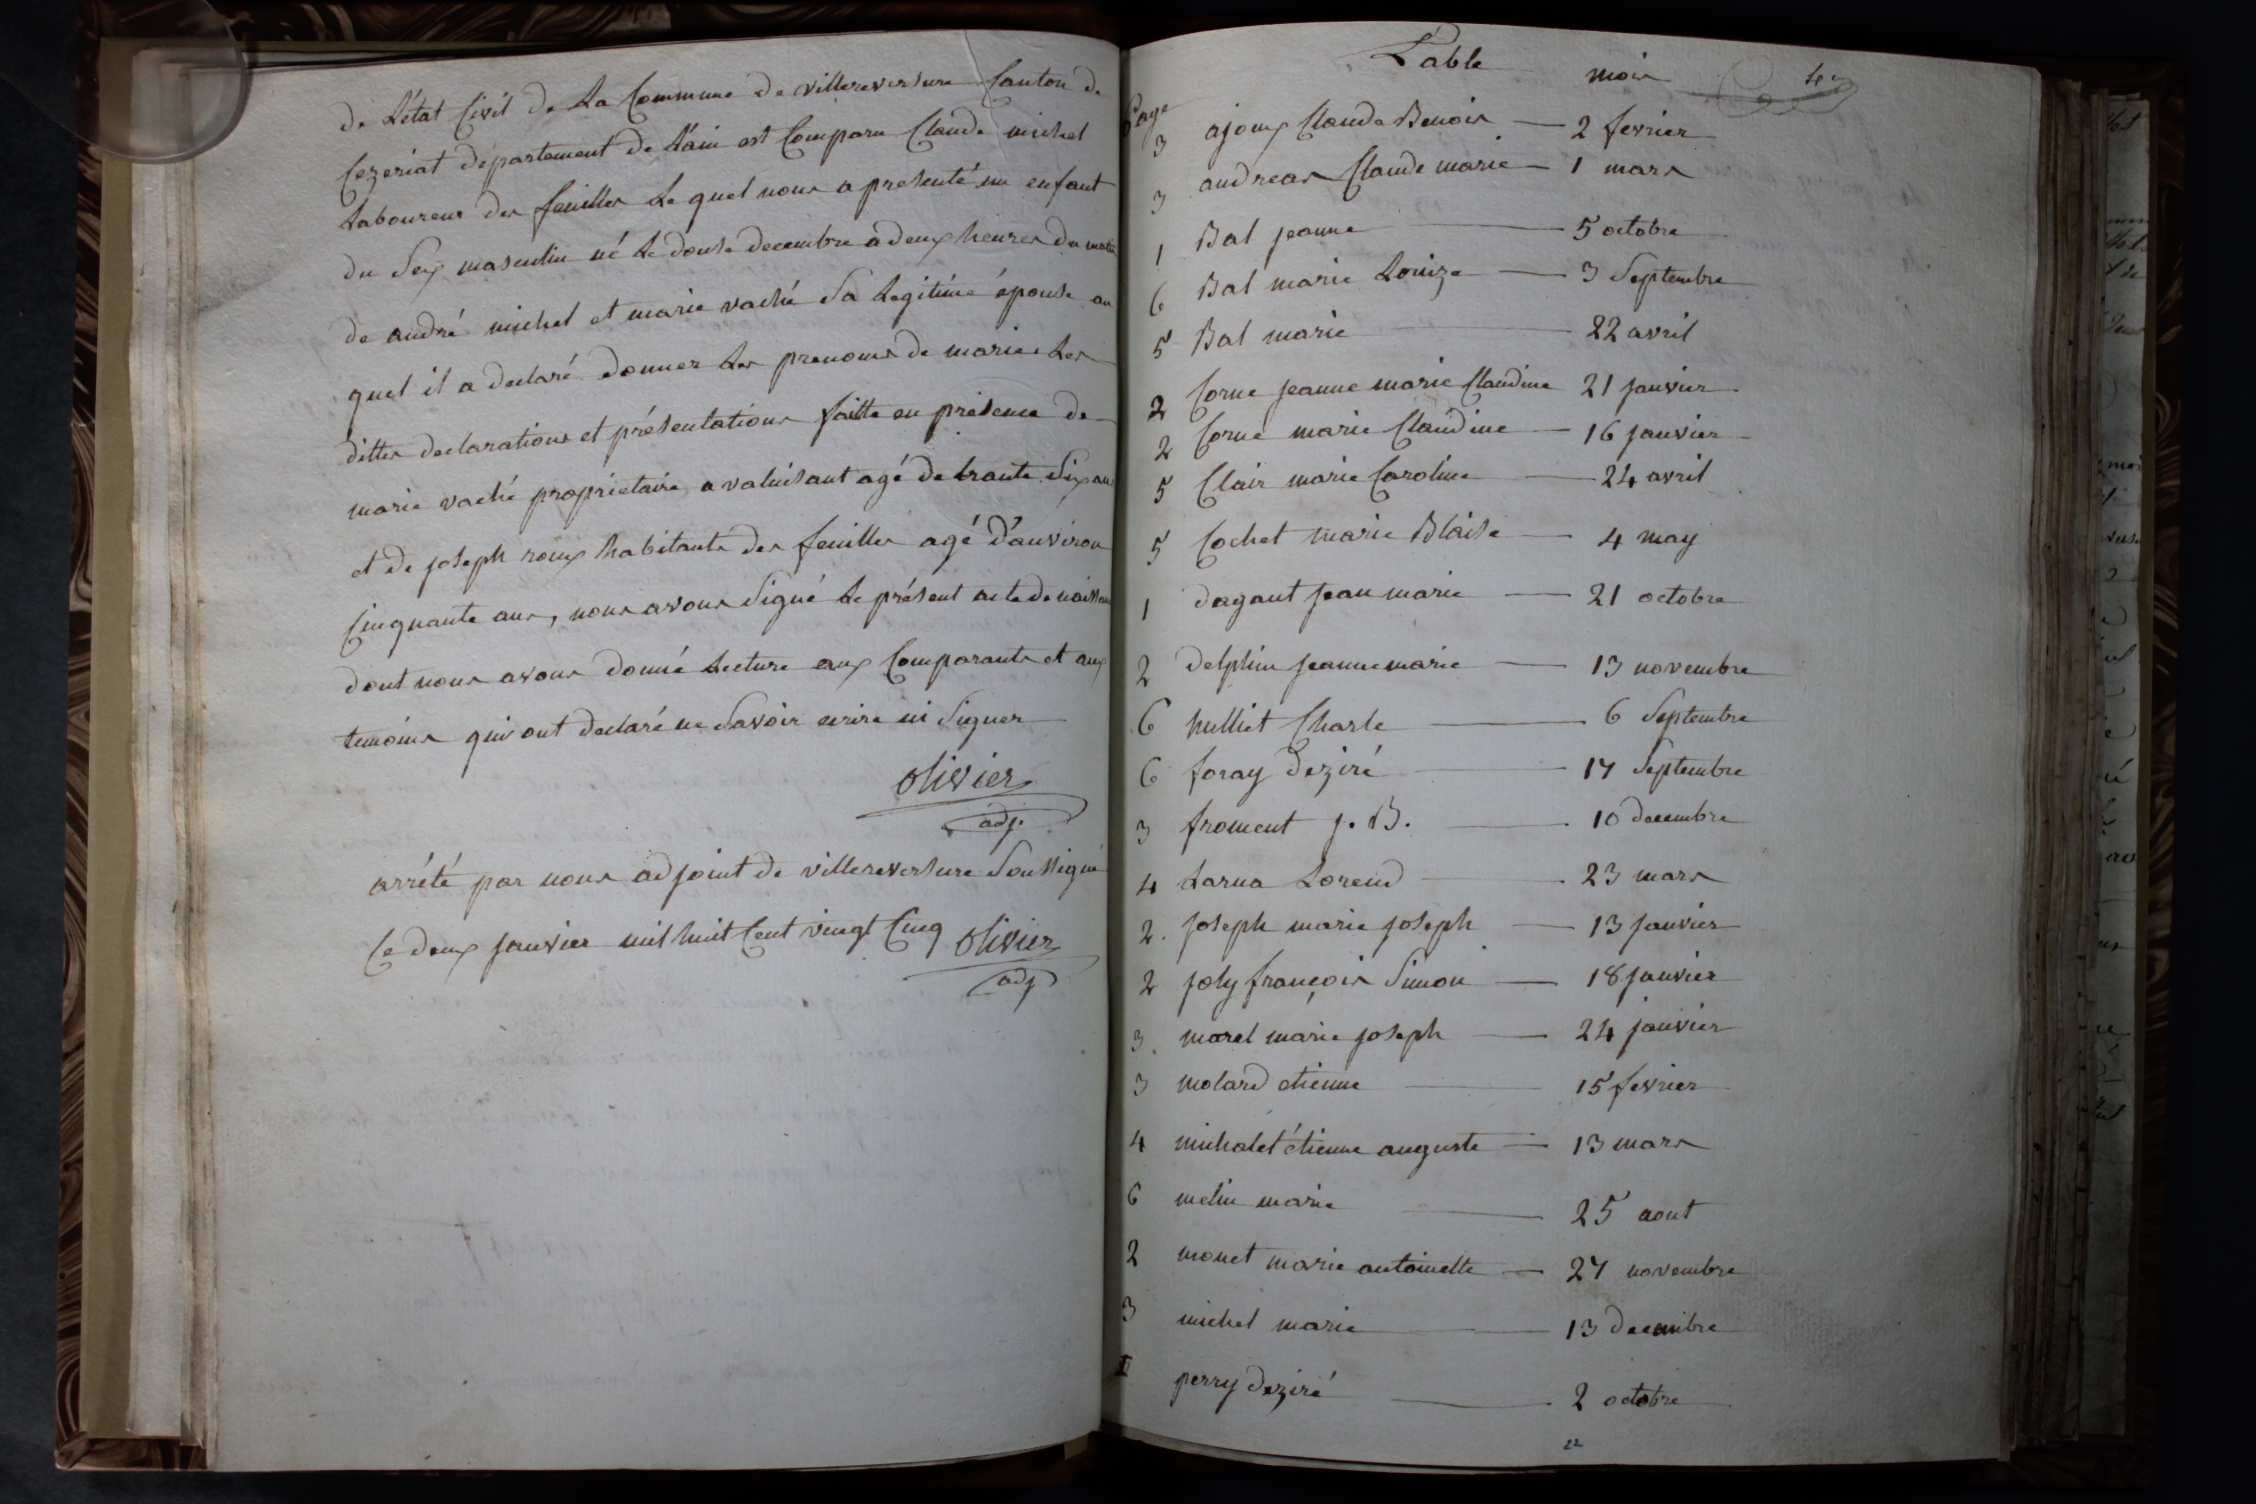 de L'état Civil de La Commune de villereversure Canton de
Cezeriat département de l'ain est Comparu Claude michel
Laboureur des feuilles Le quel nous a presenté un enfant
du Sex masculin né Le douse decembre a deux heures du matin
de andré michel et marie vaché Sa Legitime épouse au
quel il a declaré donner Les prenoms de marie Les
dittes declarations et présentations faitte en présence de
marie vaché propriétaire a valuisant agé de trante Six ans
et de joseph roux habitants des feuilles agé d'anviron
Cinquante ans, nous avons Signé Le présent acte de naissance
dont nous avons donné Lecture aux Comparants et aux
temoins qui ont declaré ne Savoir ecrire ni Signer
olivier
adj.
arrété par nous adjoint de villereversure Soussigné
Ce deux janvier mil huit Cent vingt Cinq olivier
adj
Table mois
Page
3 ajoux Claude Benois — 2 fevrier
3 andreas Claude marie — 1 mars
1 Bal jeanne — 5 octobre
6 Bal marie Louize — 3 Septembre
5 Bal marie — 22 avril
2 Corne jeanne marie Claudine 21 janvier
2 Corne marie Claudine — 16 janvier
5 Clair marie Caroline — 24 avril
5 Cochet marie Blaise — 4 may
1 dagant jean marie — 21 octobre
2 delphin jeanne marie — 13 novembre
6 hulliet Charle — 6 Septembre
6 foray deziré — 17 Septembre
3 froment j. B. — 10 decembre
4 Larua Lorend — 23 mars
2. joseph marie joseph — 13 janvier
2 joly françois Simon — 18 janvier
3. morel marie joseph — 24 janvier
3 molard etienne — 15 fevrier
4 micholet étienne auguste — 13 mars
6 melin marie — 25 aout
2 monet marie antoinette — 27 novembre
3 michel marie — 13 decembre
1 perry deziré — 2 octobre